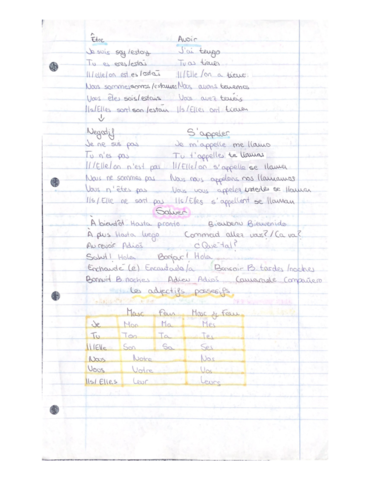 Être Avoir
Je suis soy/estoy J'ai tengo
Tu es eres/estás Tu as tienes
Il/elle/on est es/está Il/Elle/on a tiene
Nous sommes somos/estamos Nous avons tenemos
Vous êtes sois/estais Vous avez tenéis
Ils/Elles sont son/están Ils/Elles ont tienen
↓
Négatif S'appeler
Je ne suis pas Je m'appelle me llamo
Tu n'es pas Tu t'appelles te llamas
Il/Elle/on n'est pas Il/Elle/on s'appelle se llama
Nous ne sommes pas Nous nous appelons nos llamamos
Vous n'êtes pas Vous vous appelez
Ils/Elle ne sont pas Ils/Elles s'appellent se llaman
Saluer
À bientôt. Hasta pronto Bienvenu Bienvenido
À plus Hasta luego Comment allez vous? / Ça va?
Au revoir Adiós ¿Qué tal?
Salut! Hola Bonjour! Hola
Enchanté (e) Encantado/a Bonsoir B. tardes/noches
Bonsoir B. noches Adieu Adiós Camarade Compañero
Les adjectifs possessifs
Masc Fem Masc y Fem
Je Mon Ma Mes
Tu Ton Ta Tes
Il/Elle Son Sa Ses
Nous Notre Nos
Vous Votre Vos
Ils/Elles Leur Leurs